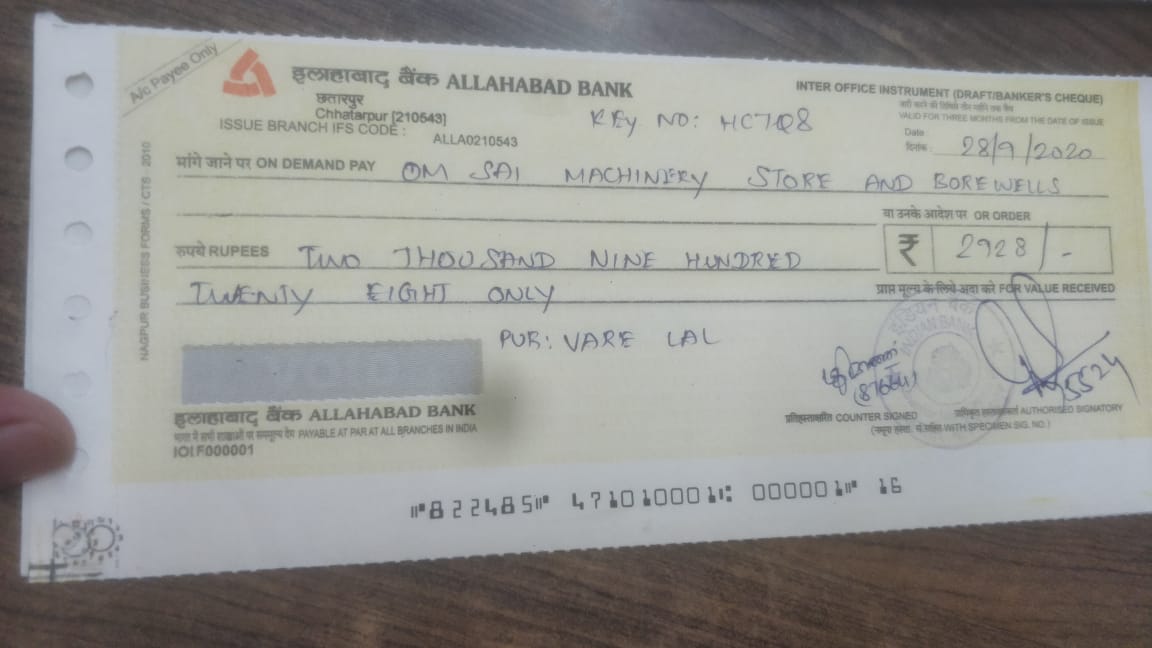 A/c Payee Only
इलाहाबाद बैंक ALLAHABAD BANK
छतारपुर
Chhatarpur [210543]
ISSUE BRANCH IFS CODE :
ALLA0210543
KEY NO: HC7Q8
INTER OFFICE INSTRUMENT (DRAFT/BANKER'S CHEQUE)
जारी करने की तिथि से तीन महीने तक वैध
VALID FOR THREE MONTHS FROM THE DATE OF ISSUE
Date
दिनांक : 28/9/2020
मांगे जाने पर ON DEMAND PAY OM SAI MACHINERY STORE AND BOREWELLS
या उनके आदेश पर OR ORDER
रुपये RUPEES TWO THOUSAND NINE HUNDRED
₹ 2928/-
TWENTY EIGHT ONLY
प्राप्त मूल्य के लिये अदा करे FOR VALUE RECEIVED
PUR: VARE LAL
इंडियन बैंक
INDIAN BANK
5524
इलाहाबाद बैंक ALLAHABAD BANK
भारत में सभी शाखाओं पर सममूल्य देय PAYABLE AT PAR AT ALL BRANCHES IN INDIA
IOIF000001
प्रतिहस्ताक्षरित COUNTER SIGNED
प्राधिकृत हस्ताक्षरकर्ता AUTHORISED SIGNATORY
WITH SPECIMEN SIG. NO.)
NAGPUR BUSINESS FORMS / CTS - 2010
⑈822485⑈ 471010001⑆ 000001⑈ 16